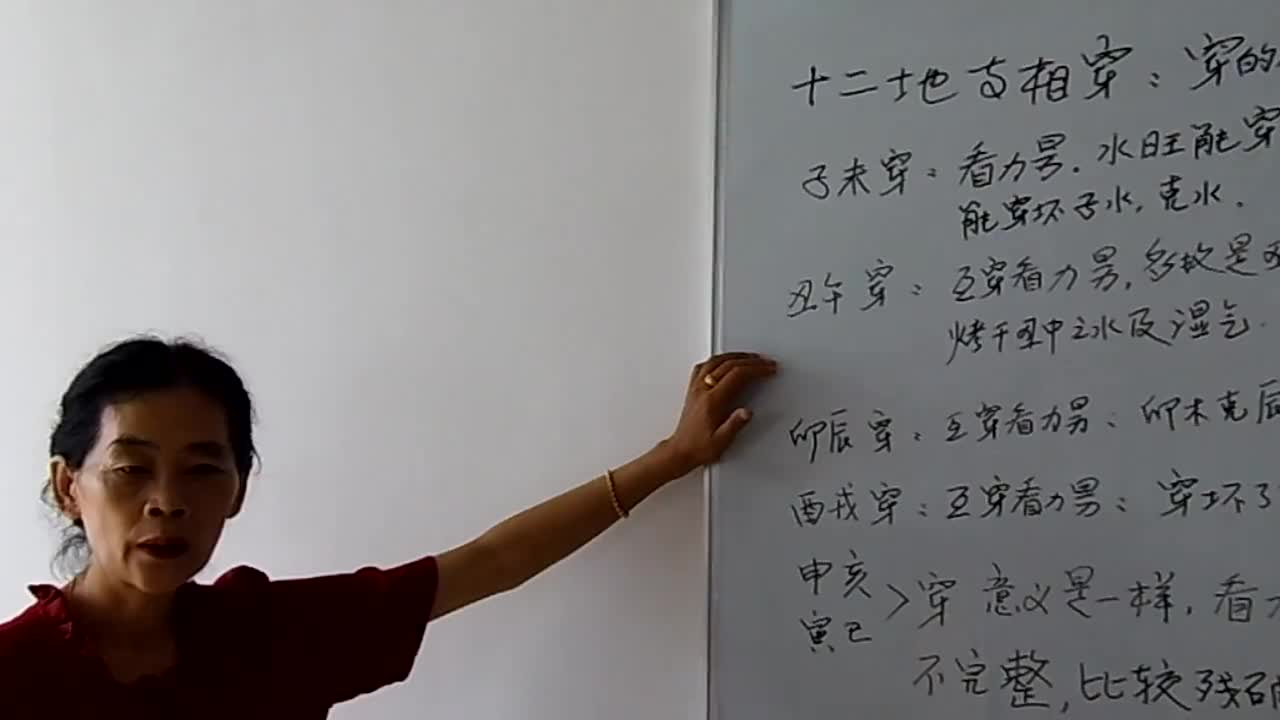 十二地支相穿：穿的
子未穿：看力另．水旺能穿
能穿坏子水，克水．
丑午穿：互穿看力男，多故是丑
烤干丑中之水及湿气．
卯辰穿：互穿看力男：卯木克辰
酉戌穿：互穿看力男：穿坏了
申亥
寅巳>穿 意义是一样，看
不完整，比较残破